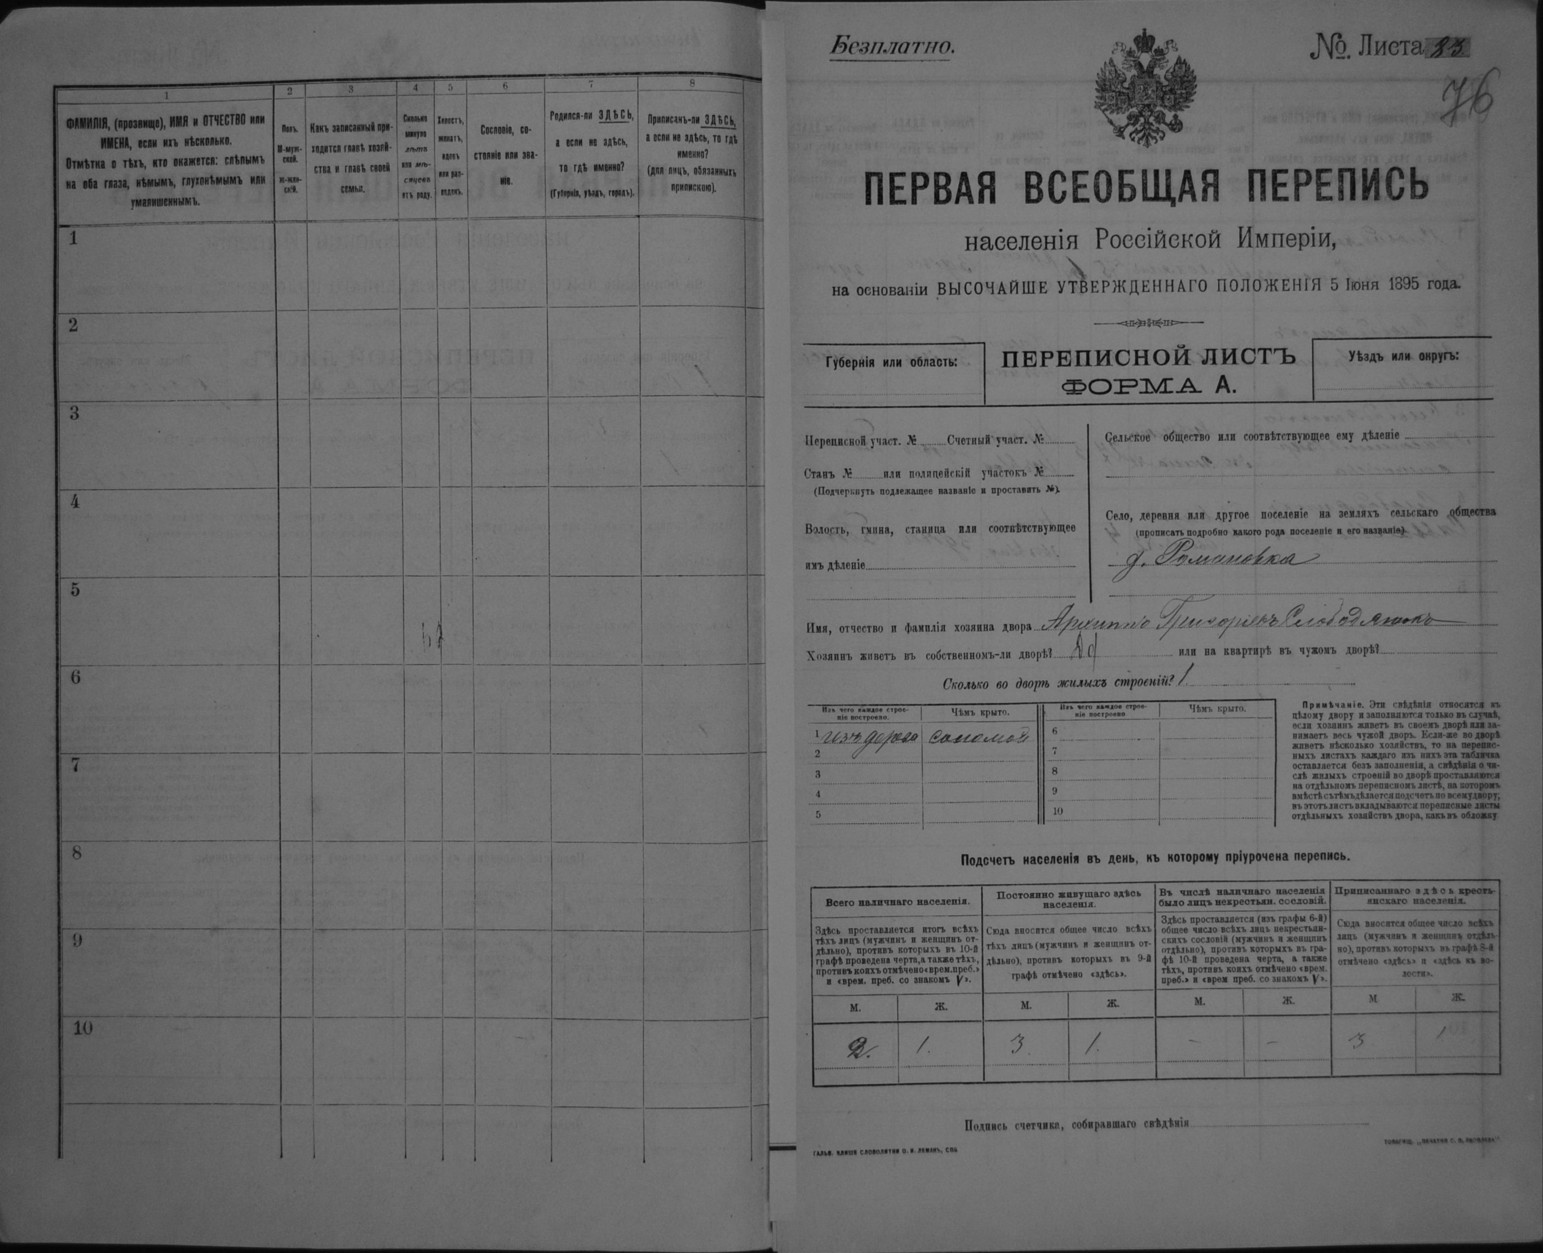 1 2 3 4 5 6 7 8
ФАМИЛІЯ, (прозвище), ИМЯ и ОТЧЕСТВО или
ИМЕНА, если ихъ нѣсколько.
Отмѣтка о тѣхъ, кто окажется: слѣпымъ
на оба глаза, нѣмымъ, глухонѣмымъ или
умалишеннымъ.
Полъ.
М-муж-
ской.
Ж-жен-
скій.
Какъ записанный при-
ходится главѣ хозяй-
ства и главѣ своей
семьи.
Сколько
минуло
лѣтъ
или мѣ-
сяцевъ
отъ роду.
Холостъ,
женатъ,
вдовъ
или раз-
веденъ.
Сословіе, со-
стояніе или зва-
ніе.
Родился-ли ЗДѢСЬ,
а если не здѣсь,
то гдѣ именно?
(Губернія, уѣздъ, городъ).
Приписанъ-ли ЗДѢСЬ,
а если не здѣсь, то гдѣ
именно?
(для лицъ, обязанныхъ
припискою).
1
2
3
4
5
6
7
8
9
10
Безплатно.
№. Листа 83
76
ПЕРВАЯ ВСЕОБЩАЯ ПЕРЕПИСЬ
населенія Россійской Имперіи,
на основаніи ВЫСОЧАЙШЕ УТВЕРЖДЕННАГО ПОЛОЖЕНІЯ 5 Іюня 1895 года.
Губернія или область:
ПЕРЕПИСНОЙ ЛИСТЪ
ФОРМА А.
Уѣздъ или округъ:
Переписной участ. № Счетный участ. №
Станъ № или полицейскій участокъ №
(Подчеркнуть подлежащее названіе и проставить №).
Волость, гмина, станица или соотвѣтствующее
имъ дѣленіе
Сельское общество или соотвѣтствующее ему дѣленіе
Село, деревня или другое поселеніе на земляхъ сельскаго общества
(прописать подробно какого рода поселеніе и его названіе)
д. Романовка
Имя, отчество и фамилія хозяина двора Архиппъ Григорьевъ Слободянюкъ
Хозяинъ живетъ въ собственномъ-ли дворѣ? Да или на квартирѣ въ чужомъ дворѣ?
Сколько во дворѣ жилыхъ строеній? 1
Изъ чего каждое строе-
ніе построено.
Чѣмъ крыто.
Изъ чего каждое строе-
ніе построено
Чѣмъ крыто.
1 изъ дерева соломой
2
3
4
5
6
7
8
9
10
Примѣчаніе. Эти свѣдѣнія относятся къ
цѣлому двору и заполняются только въ случаѣ,
если хозяинъ живетъ въ своемъ дворѣ или за-
нимаетъ весь чужой дворъ. Если-же во дворѣ
живетъ нѣсколько хозяйствъ, то на перепис-
ныхъ листахъ каждаго изъ нихъ эта табличка
оставляется безъ заполненія, а свѣдѣнія о чи-
слѣ жилыхъ строеній во дворѣ проставляются
на отдѣльномъ переписномъ листѣ, на которомъ
вмѣстѣ съ тѣмъ дѣлается подсчетъ по всему двору;
въ этотъ листъ вкладываются переписные листы
отдѣльныхъ хозяйствъ двора, какъ въ обложку
Подсчетъ населенія въ день, къ которому пріурочена перепись.
Всего наличнаго населенія.
Здѣсь проставляется итогъ всѣхъ
тѣхъ лицъ (мужчинъ и женщинъ от-
дѣльно), противъ которыхъ въ 10-й
графѣ проведена черта, а также тѣхъ,
противъ коихъ отмѣчено «врем. преб.»
и «врем. преб. со знакомъ V».
Постоянно живущаго здѣсь
населенія.
Сюда вносится общее число всѣхъ
тѣхъ лицъ (мужчинъ и женщинъ от-
дѣльно), противъ которыхъ въ 9-й
графѣ отмѣчено «здѣсь».
Въ числѣ наличнаго населенія
было лицъ некрестьян. сословій.
Здѣсь проставляется (изъ графы 6-й)
общее число всѣхъ лицъ некрестьян-
скихъ сословій (мужчинъ и женщинъ
отдѣльно), противъ которыхъ въ гра-
фѣ 10-й проведена черта, а также
тѣхъ, противъ коихъ отмѣчено «врем.
преб.» и «врем преб. со знакомъ V».
Приписаннаго здѣсь кресть-
янскаго населенія.
Сюда вносится общее число всѣхъ
лицъ (мужчинъ и женщинъ отдѣль-
но), противъ которыхъ въ графѣ 8-й
отмѣчено «здѣсь» и «здѣсь въ во-
лости».
М. Ж. М. Ж. М. Ж. М. Ж.
2. 1. 3. 1. - - 3 1
Подпись счетчика, собиравшаго свѣдѣнія